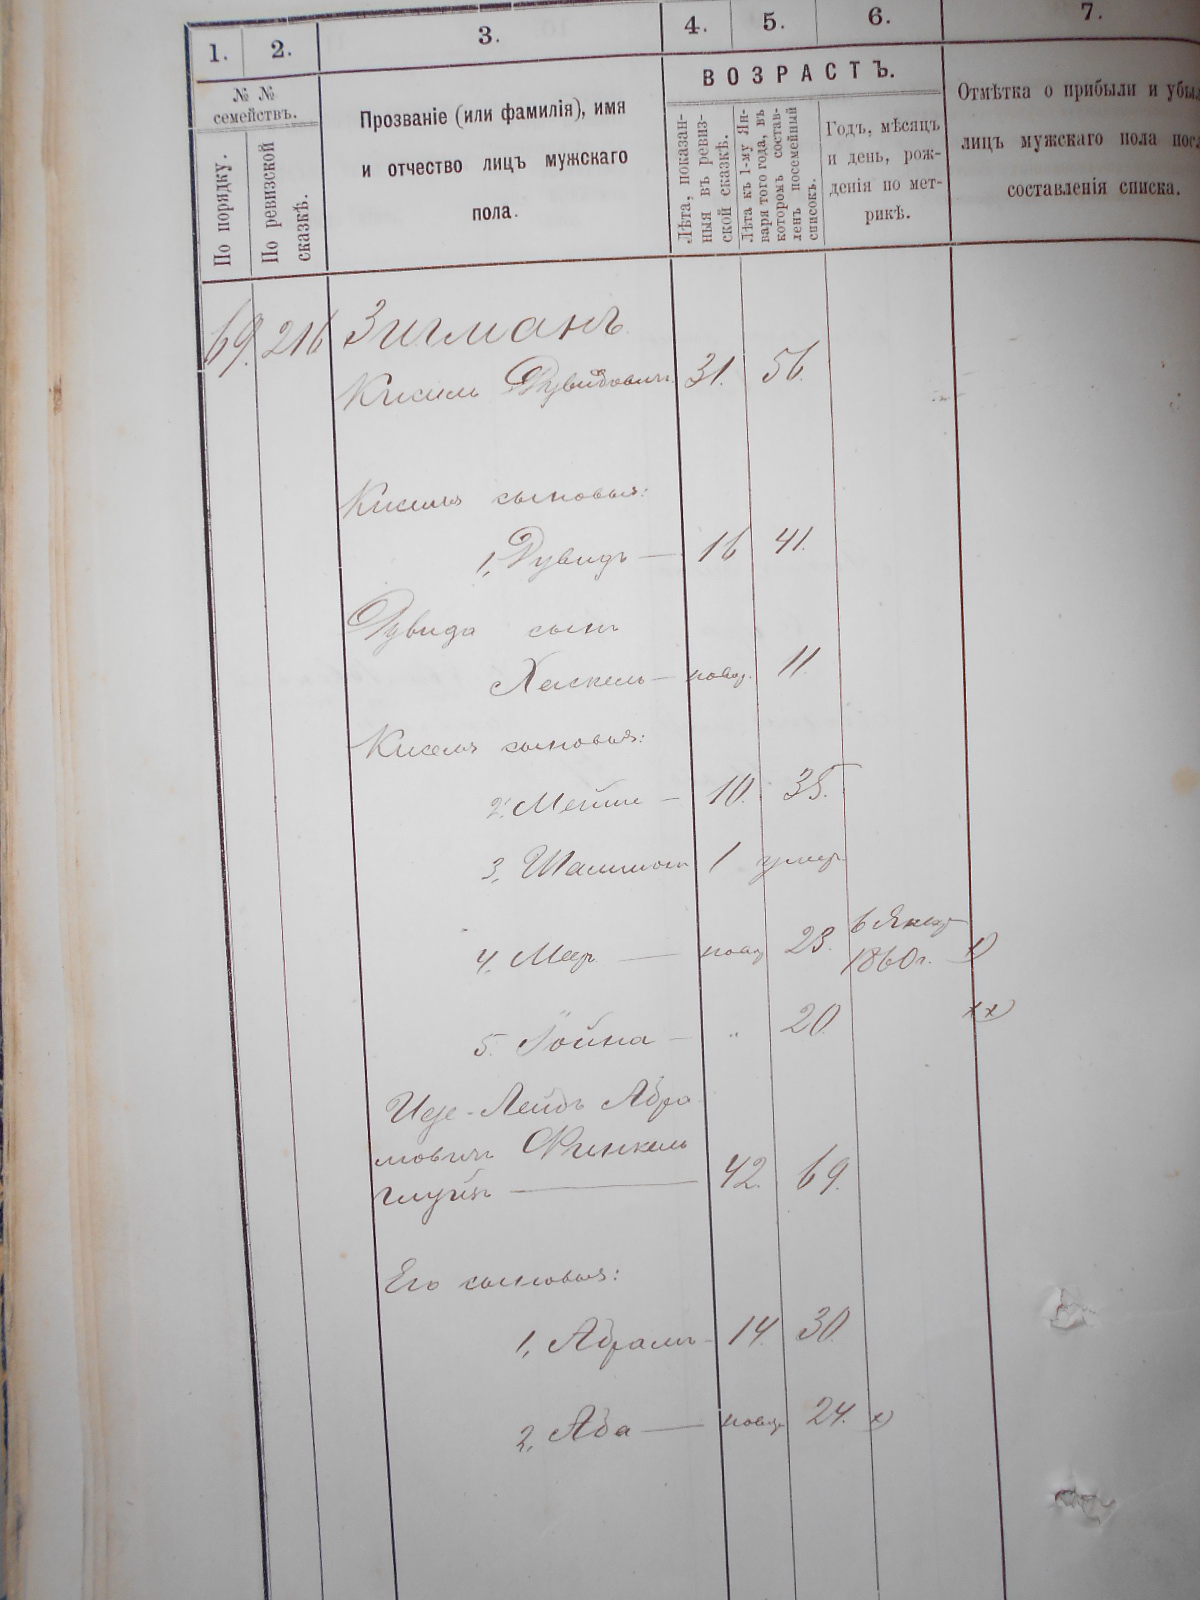 1. 2. 3. 4. 5. 6. 7.
№ № семействъ.
По порядку.
По ревизской сказкѣ.
Прозваніе (или фамилія), имя
и отчество лицъ мужскаго
пола.
ВОЗРАСТЪ.
Лѣта, показан-
ныя въ ревиз-
ской сказкѣ.
Лѣта къ 1-му Ян-
варя того года, въ
которомъ состав-
ленъ посемейный
списокъ.
Годъ, мѣсяцъ
и день, рож-
денія по мет-
рикѣ.
Отмѣтка о прибыли и убы
лицъ мужскаго пола пос
составленія списка.
69. 216 Зигманъ
Кисель Дувидовичъ 31. 56.
Киселя сыновья:
1, Дувидъ — 16 41.
Дувида сынъ
Хаскель — новор. 11.
Киселя сыновья:
2. Мейше — 10. 35.
3, Шлиома 1 умер.
4, Меер — новор 23. 6 Январ
1860 г. х)
5. Іойна — " 20. хх)
Ице-Лейбъ Абра
мовичъ Финкель
— 42. 69.
Его сыновья:
1, Абрамъ — 14. 30.
2, Аба — новор 24. х)